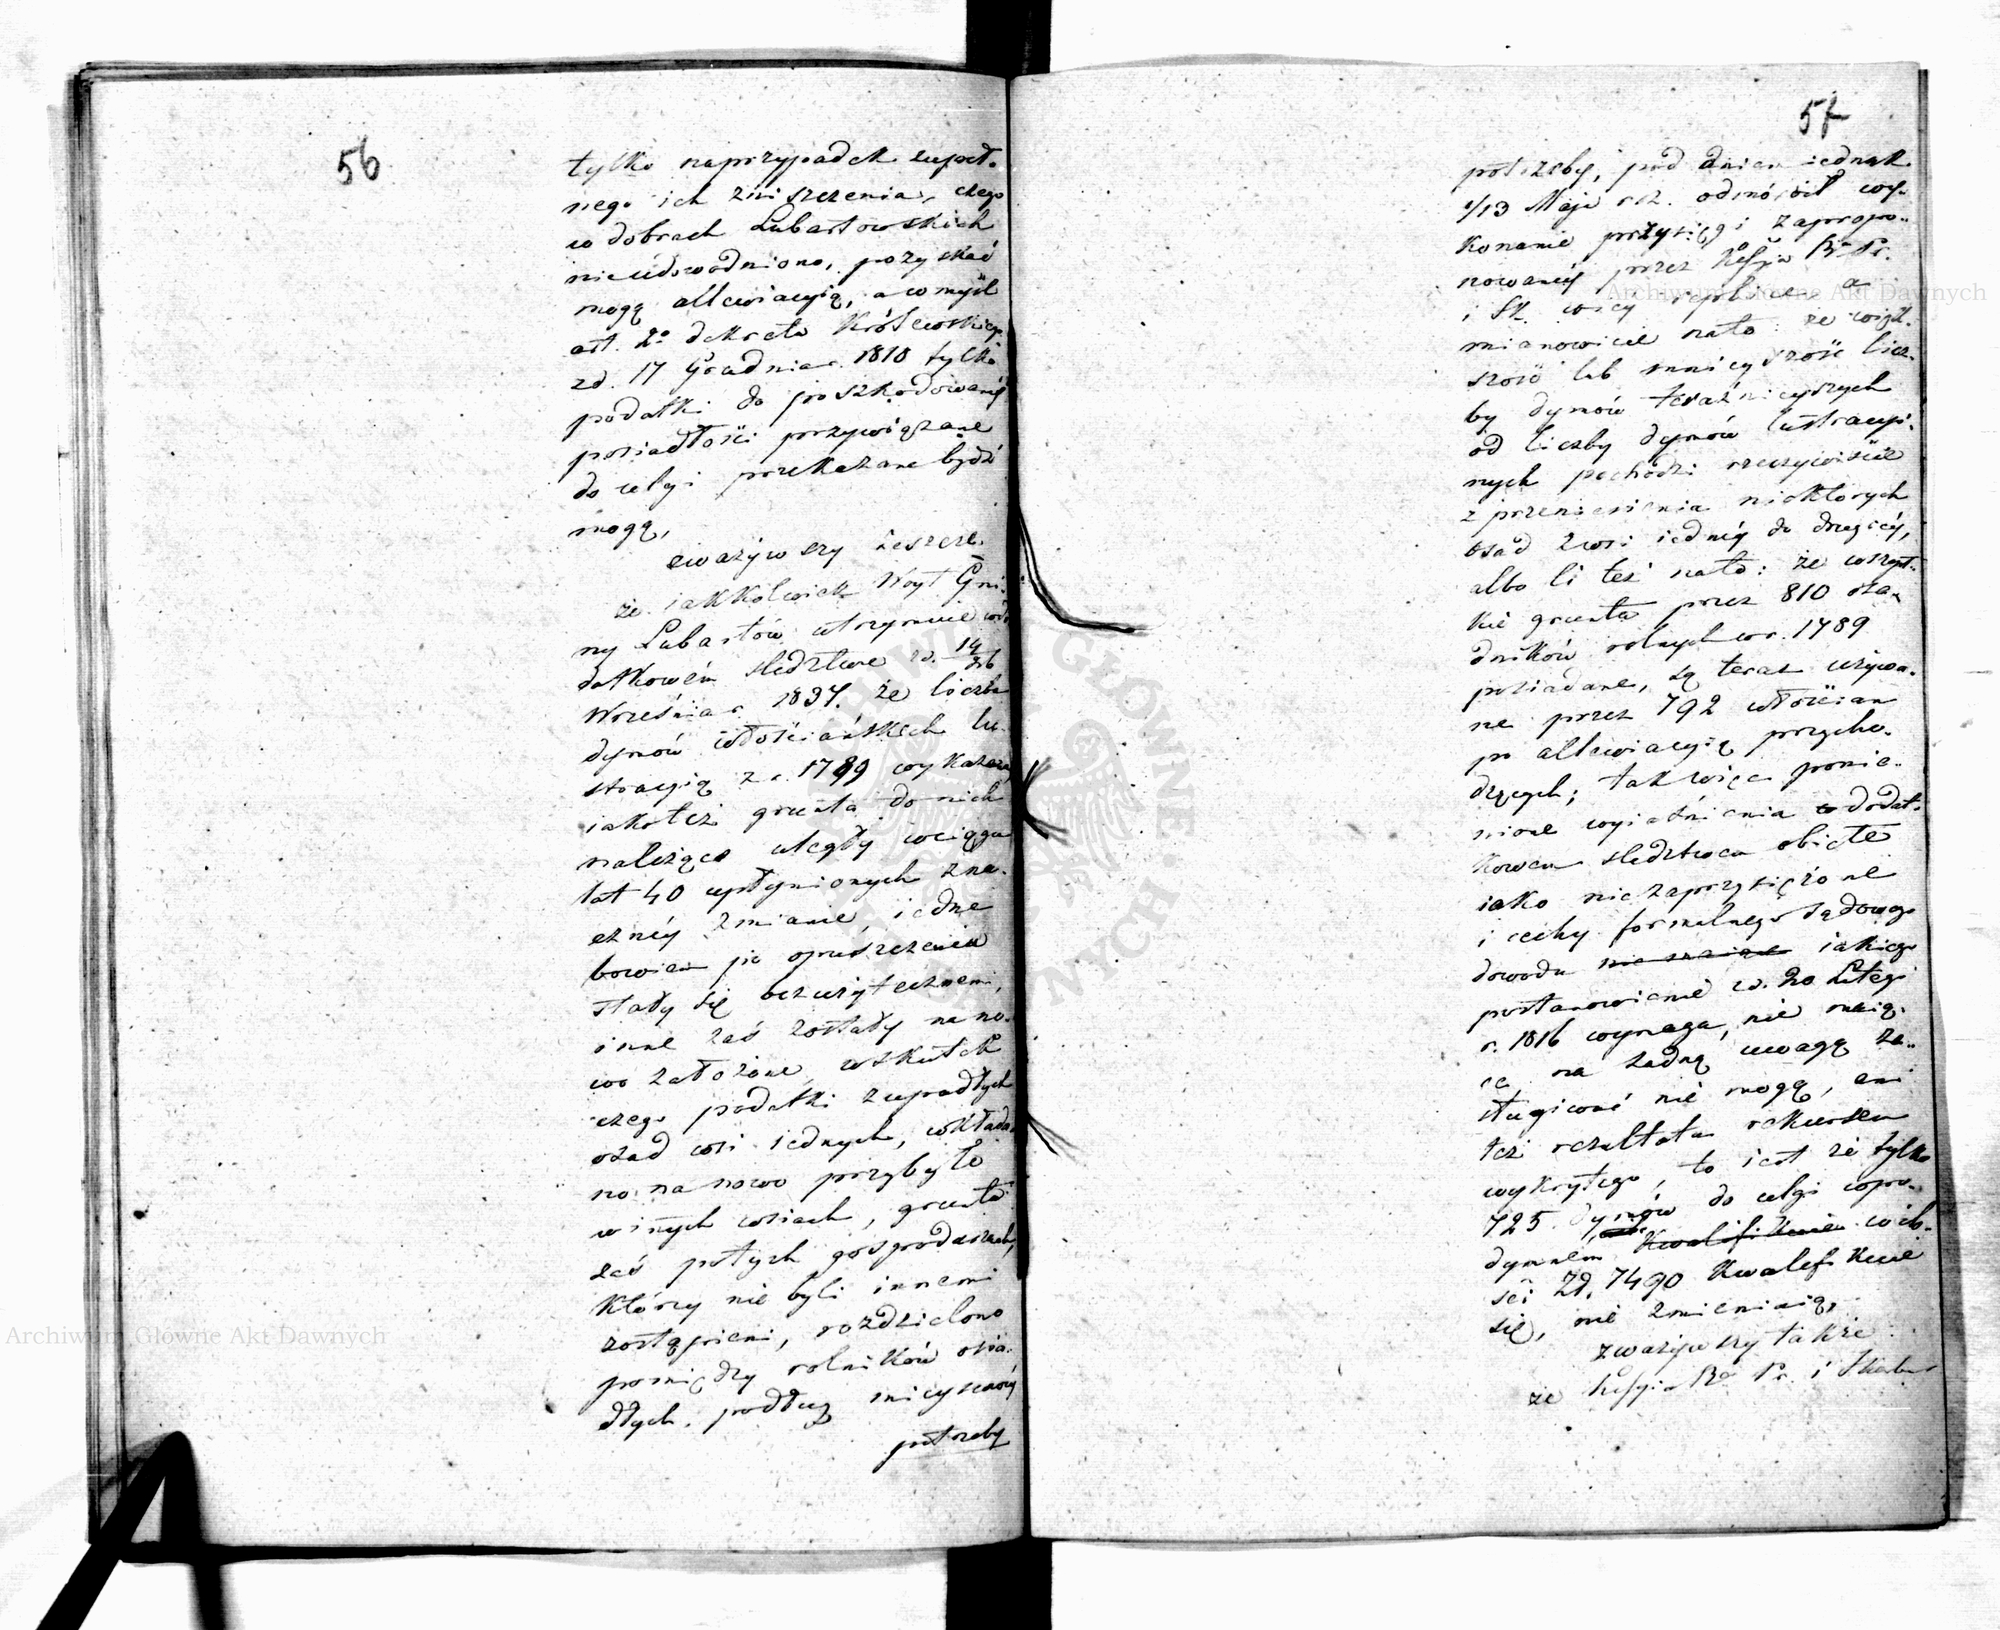 56
tylko naprzypadek zupeł-
nego ich zniszczenia, czego
w dobrach Lubartowskich
nieudowodniono, pozyskać
mogą allewiacyią, a w myśl
art. 2o dekretu Królewskiego
zd. 17 Grudnia r. 1810 tylko
podatki do poszkodowanéy
posiadłości przywiązane
do ulgi przekazane bydź
mogą,
zważywszy ieszcze
że iakkolwiek Woyt Gmi-
ny Lubartów utrzymuie wdo
datkowém śledztwie zd. 14/26
Września r. 1837. że liczba
dymów włościańskich lu-
stracyią z r. 1789 wykazana
iakoteż grunta do nich
należące uległy wciągu
lat 40 upłynionych zna-
cznéy zmianie, iedne
bowiem po opuszczeniu
stały się bezużytecznemi,
inne zaś zostały na no-
wo założone, wskutek
czego podatki z upadłych
osad wsi iednych, wkłada
no na nowo przybyłe
w innych wsiach, grunta
zaś potych gospodarzach,
którzy nie byli innemi
zastąpieni, rozdzielono
pomiędzy rolników osia-
dłych, podług mieyscowéy
potrzeby
57
potrzeby, pod dniem iednak
1/13 Maja r. z. odmówił wy-
konanie przysięgi zapropo-
nowanéy przez Kssyą Rz. Pr.
i Sk. wicy replice a
mianowicie nato: że więk-
szość lub mnieyszość licz-
by dymów teraźnieyszych
od liczby dymów lustracyi-
nych pochodzi rzeczywiście
z przeniesienia niektórych
osad z wsi iednéy do drugiéy,
albo li też nato: że wszyst-
kie grunta przez 810 osa-
dników rolnych w r. 1789
posiadane, są teraz używa-
ne przez 792 włościan
po allewiacyią przycho-
dzących; tak więc pomie-
nione wyiaśnienia w dodat-
kowem śledztwem obięte
iako nie zaprzysiężone
i cechy formalnego sądowego
dowodu nie maiące iakiego
postanowienie zd. 20 Lutego
r. 1816 wymaga, nie maią-
ce, na żadną uwagę za-
sługiwać nie mogą, ani
też rezultatu rekursem
wykrytego, to iest że tylko
725 dymów do ulgi w po-
dymném kwalifikuie wilo-
ści Zł. 7490 kwalifikuie
się, nie zmieniaią,
zważywszy także
że Kssyia Rz. Pr. i Skarbu
Archiwum Główne Akt Dawnych
Archiwum Główne Akt Dawnych